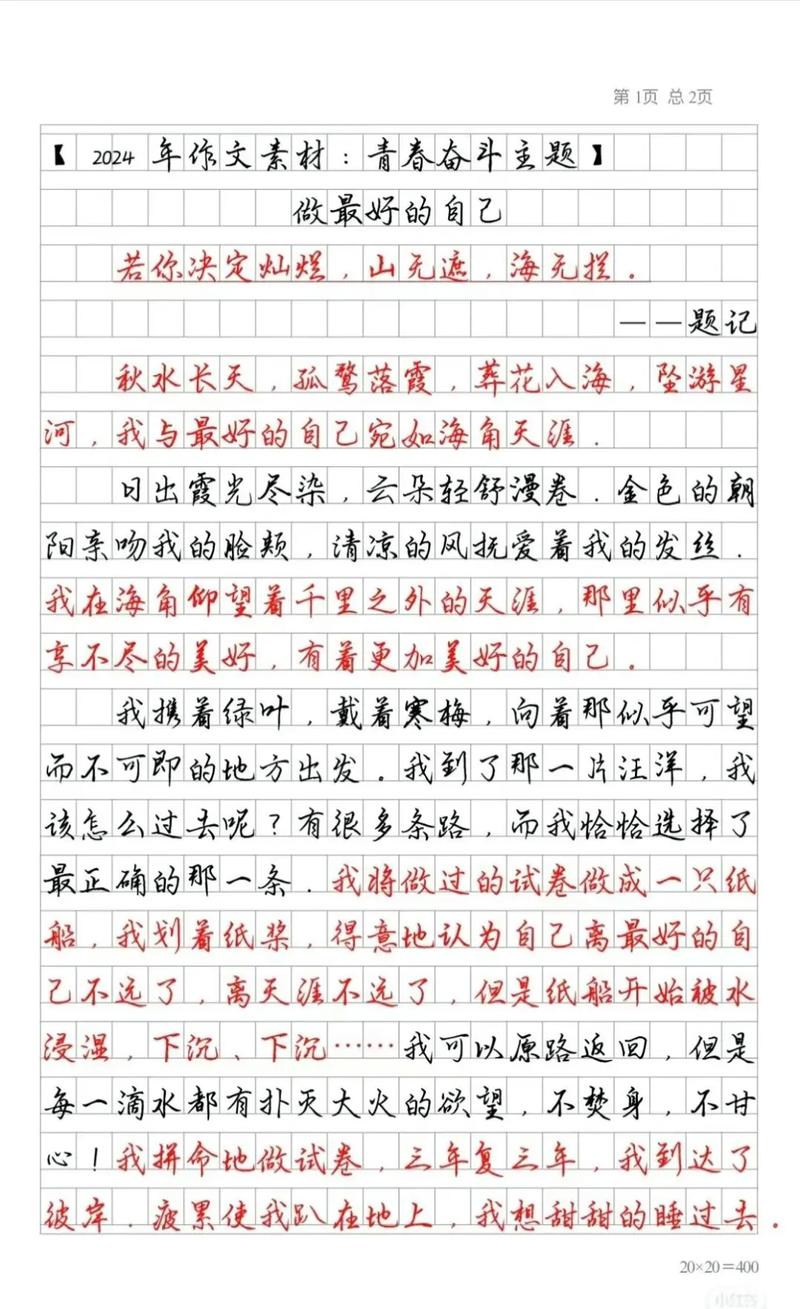 第1页 总2页
【 2024 年作文素材：青春奋斗主题】
做最好的自己
若你决定灿烂，山无遮，海无拦。
——题记
秋水长天，孤鹜落霞，葬花入海，坠游星
河，我与最好的自己宛如海角天涯.
日出霞光尽染，云朵轻舒漫卷.金色的朝
阳亲吻我的脸颊，清凉的风抚爱着我的发丝.
我在海角仰望着千里之外的天涯，那里似乎有
享不尽的美好，有着更加美好的自己。
我携着绿叶，戴着寒梅，向着那似乎可望
而不可即的地方出发。我到了那一片汪洋，我
该怎么过去呢？有很多条路，而我恰恰选择了
最正确的那一条.我将做过的试卷做成一只纸
船，我划着纸桨，得意地认为自己离最好的自
己不远了，离天涯不远了，但是纸船开始被水
浸湿，下沉、下沉……我可以原路返回，但是
每一滴水都有扑灭大火的欲望，不焚身，不甘
心！我拼命地做试卷，三年复三年，我到达了
彼岸.疲累使我趴在地上，我想甜甜的睡过去。
20×20＝400
小红书